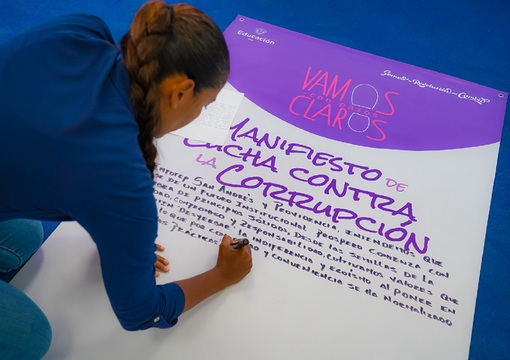 Educación
VAMOS
con pasos
CLAROS
MANIFIESTO DE
LUCHA CONTRA
LA CORRUPCIÓN
SAN ANDRÉS Y PROVIDENCIA, ENTENDEMOS QUE
DE UN FUTURO INSTITUCIONAL PRÓSPERO COMIENZA CON
DE PRINCIPIOS SÓLIDOS. DESDE LAS SEMILLAS DE LA
COMPROMISO Y RESPONSABILIDAD, CULTIVAMOS VALORES QUE
POR LA INDIFERENCIA Y EGOÍSMO AL PONER EN
PRÁCTICAS Y CONVENIENCIA SE HA NORMALIZADO